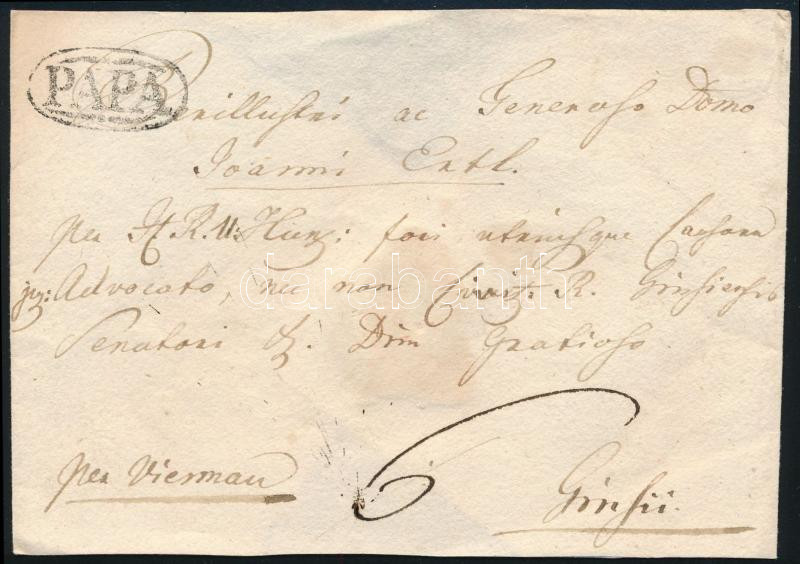 PAPA
Perillustri ac Generoso Domo
Joanni Ertl.
per H. R. U. Hung: fori utriusque Causarum
jur: Advocato, nec non Civit: R. Ginsiensis
Senatori &. Dno Gratioso
per Vierman 6 Ginsii.
darabanth